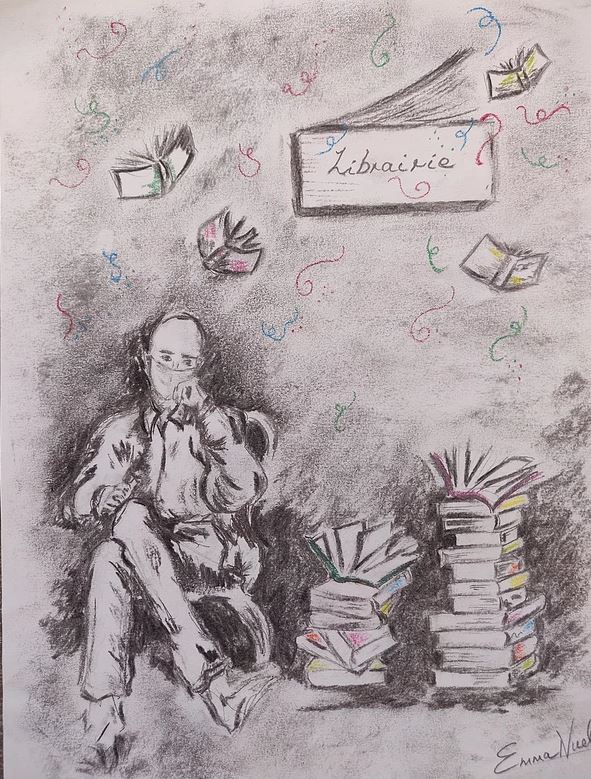 Librairie
Emma Nuel